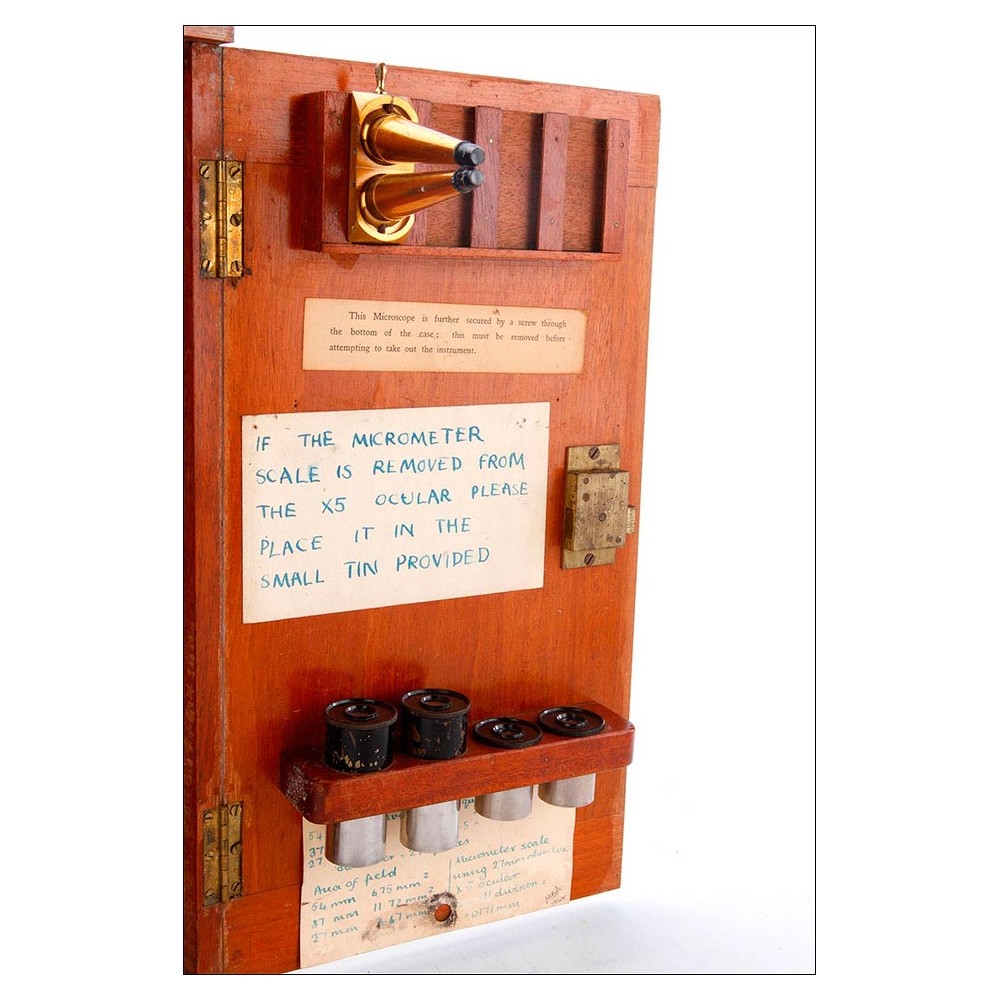 This Microscope is further secured by a screw through
the bottom of the case; this must be removed before
attempting to take out the instrument.
IF THE MICROMETER
SCALE IS REMOVED FROM
THE X5 OCULAR PLEASE
PLACE IT IN THE
SMALL TIN PROVIDED
54
37
27
Area of field
54 mm 6.75 mm 2
37 mm 11.72 mm 2
27 mm
Micrometer scale
using 27mm
X5 ocular
1 division =
.0171mm